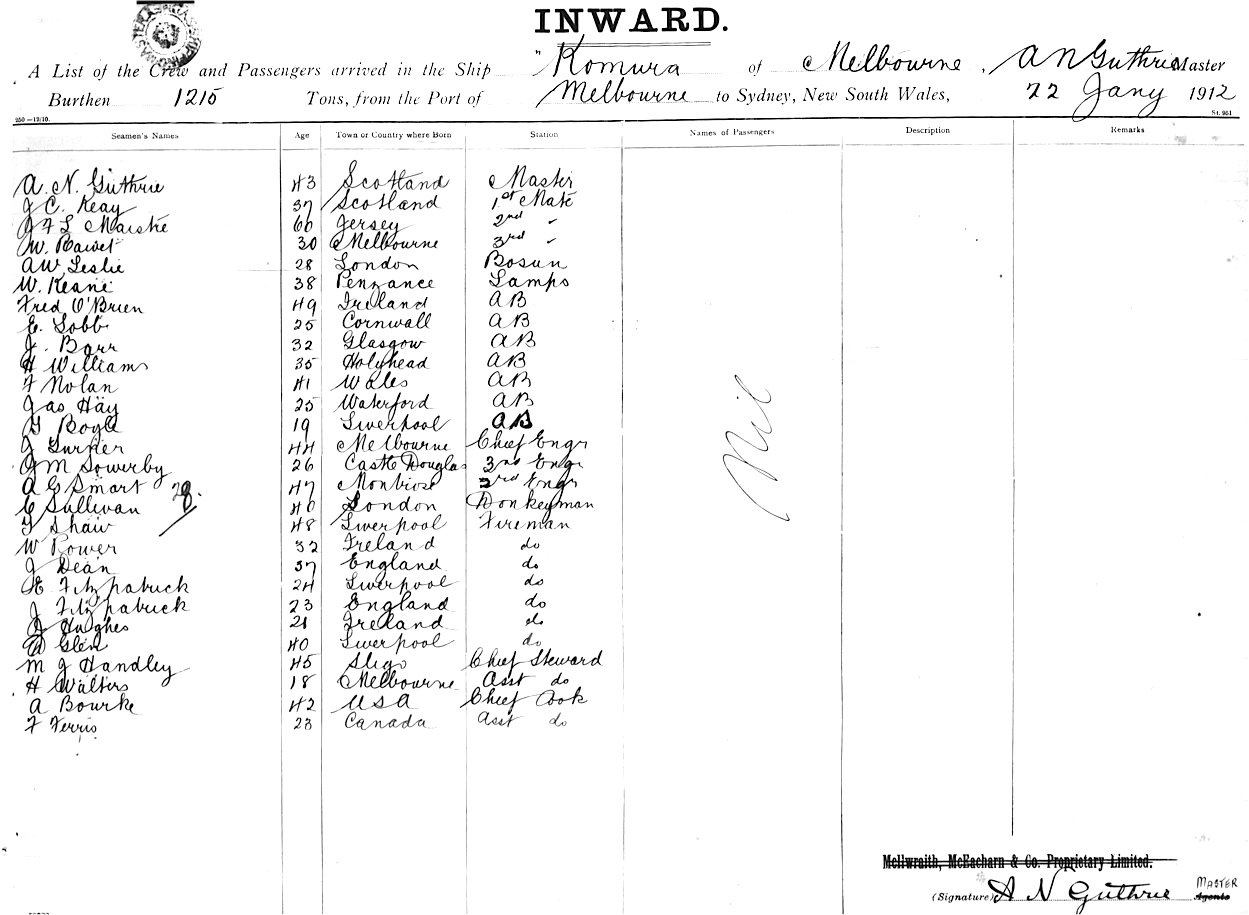 INWARD.
A List of the Crew and Passengers arrived in the Ship "Komura of Melbourne, A N Guthrie Master
Burthen 1215 Tons, from the Port of Melbourne to Sydney, New South Wales, 22 Jany 1912
250—12/10. St. 951
Seamen's Names Age Town or Country where Born Station Names of Passengers Description Remarks
A. N. Guthrie 43 Scotland Master
J C. Keay 37 Scotland 1st Mate
J F L Maistre 60 Jersey 2nd "
W. 30 Melbourne 3rd "
A W Leslie 28 London Bosun
W. Keane 38 Penzance Lamps
Fred O'Brien 49 Ireland AB
E. Lobb 25 Cornwall AB
J. Barr 32 Glasgow AB
H Williams 35 Holyhead AB
F Nolan 41 Wales AB
Jas Hay 25 Waterford AB
G Boyle 19 Liverpool AB
J Turner 44 Melbourne Chief Engr
J M Sowerby 26 Castle Douglas 3nd Engr
A G Smart 47 Montrose 2rd Engr
C Sullivan 28. 40 London Donkeyman
T Shaw 48 Liverpool Fireman
W Power 32 Ireland do
J Dean 37 England do
E Fitzpatrick 24 Liverpool do
J Fitzpatrick 23 England do
J Hughes 21 Ireland do
A Glen 40 Liverpool do
M J Handley 45 Sligo Chief Steward
H Walters 18 Melbourne Asst do
A Bourke 42 USA Chief Cook
F Ferris 23 Canada Asst do
Nil
McIlwraith, McEacharn & Co. Proprietary Limited.
(Signature) A N Guthrie MASTER
Agents